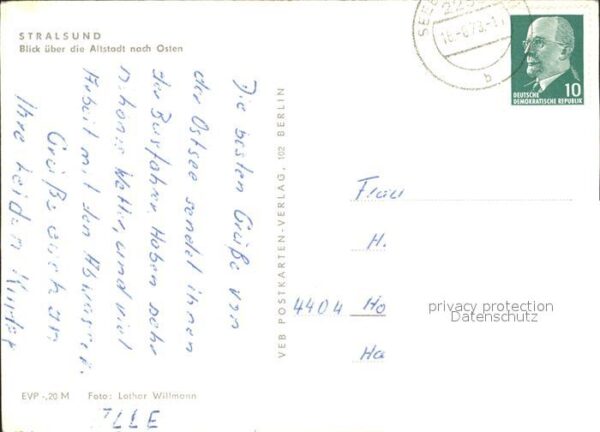 STRALSUND
Blick über die Altstadt nach Osten
Die besten Grüße von
der Ostsee sendet ihnen
der Busfahrer. Haben sehr
schönes Wetter, und viel
Arbeit mit den
Grüße auch an
Ihre beiden Kinder
EVP -,20 M Foto: Lothar Willmann
VEB POSTKARTEN-VERLAG, 102 BERLIN
10
DEUTSCHE
DEMOKRATISCHE REPUBLIK
b
Frau
H.
4404 Ho
Ha
privacy protection
Datenschutz